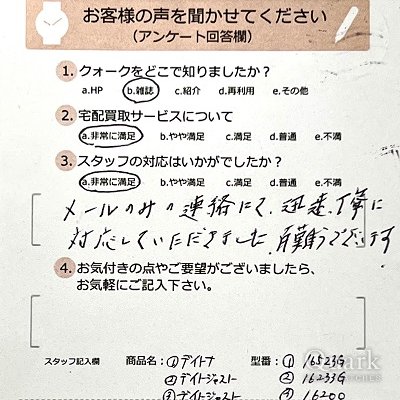 お客様の声を聞かせてください
(アンケート回答欄)
1. クォークをどこで知りましたか？
a.HP b.雑誌 c.紹介 d.再利用 e.その他
2. 宅配買取サービスについて
a.非常に満足 b.やや満足 c.満足 d.普通 e.不満
3. スタッフの対応はいかがでしたか？
a.非常に満足 b.やや満足 c.満足 d.普通 e.不満
メールのみの連絡にて、迅速、丁寧に
対応していただきました。有難うございます。
4. お気付きの点やご要望がございましたら、
お気軽にご記入下さい。
スタッフ記入欄 商品名：①デイトナ 型番：① 16523G
②デイトジャスト ② 16233G
③デイトジャスト ③ 16200
Qark
WATCHES